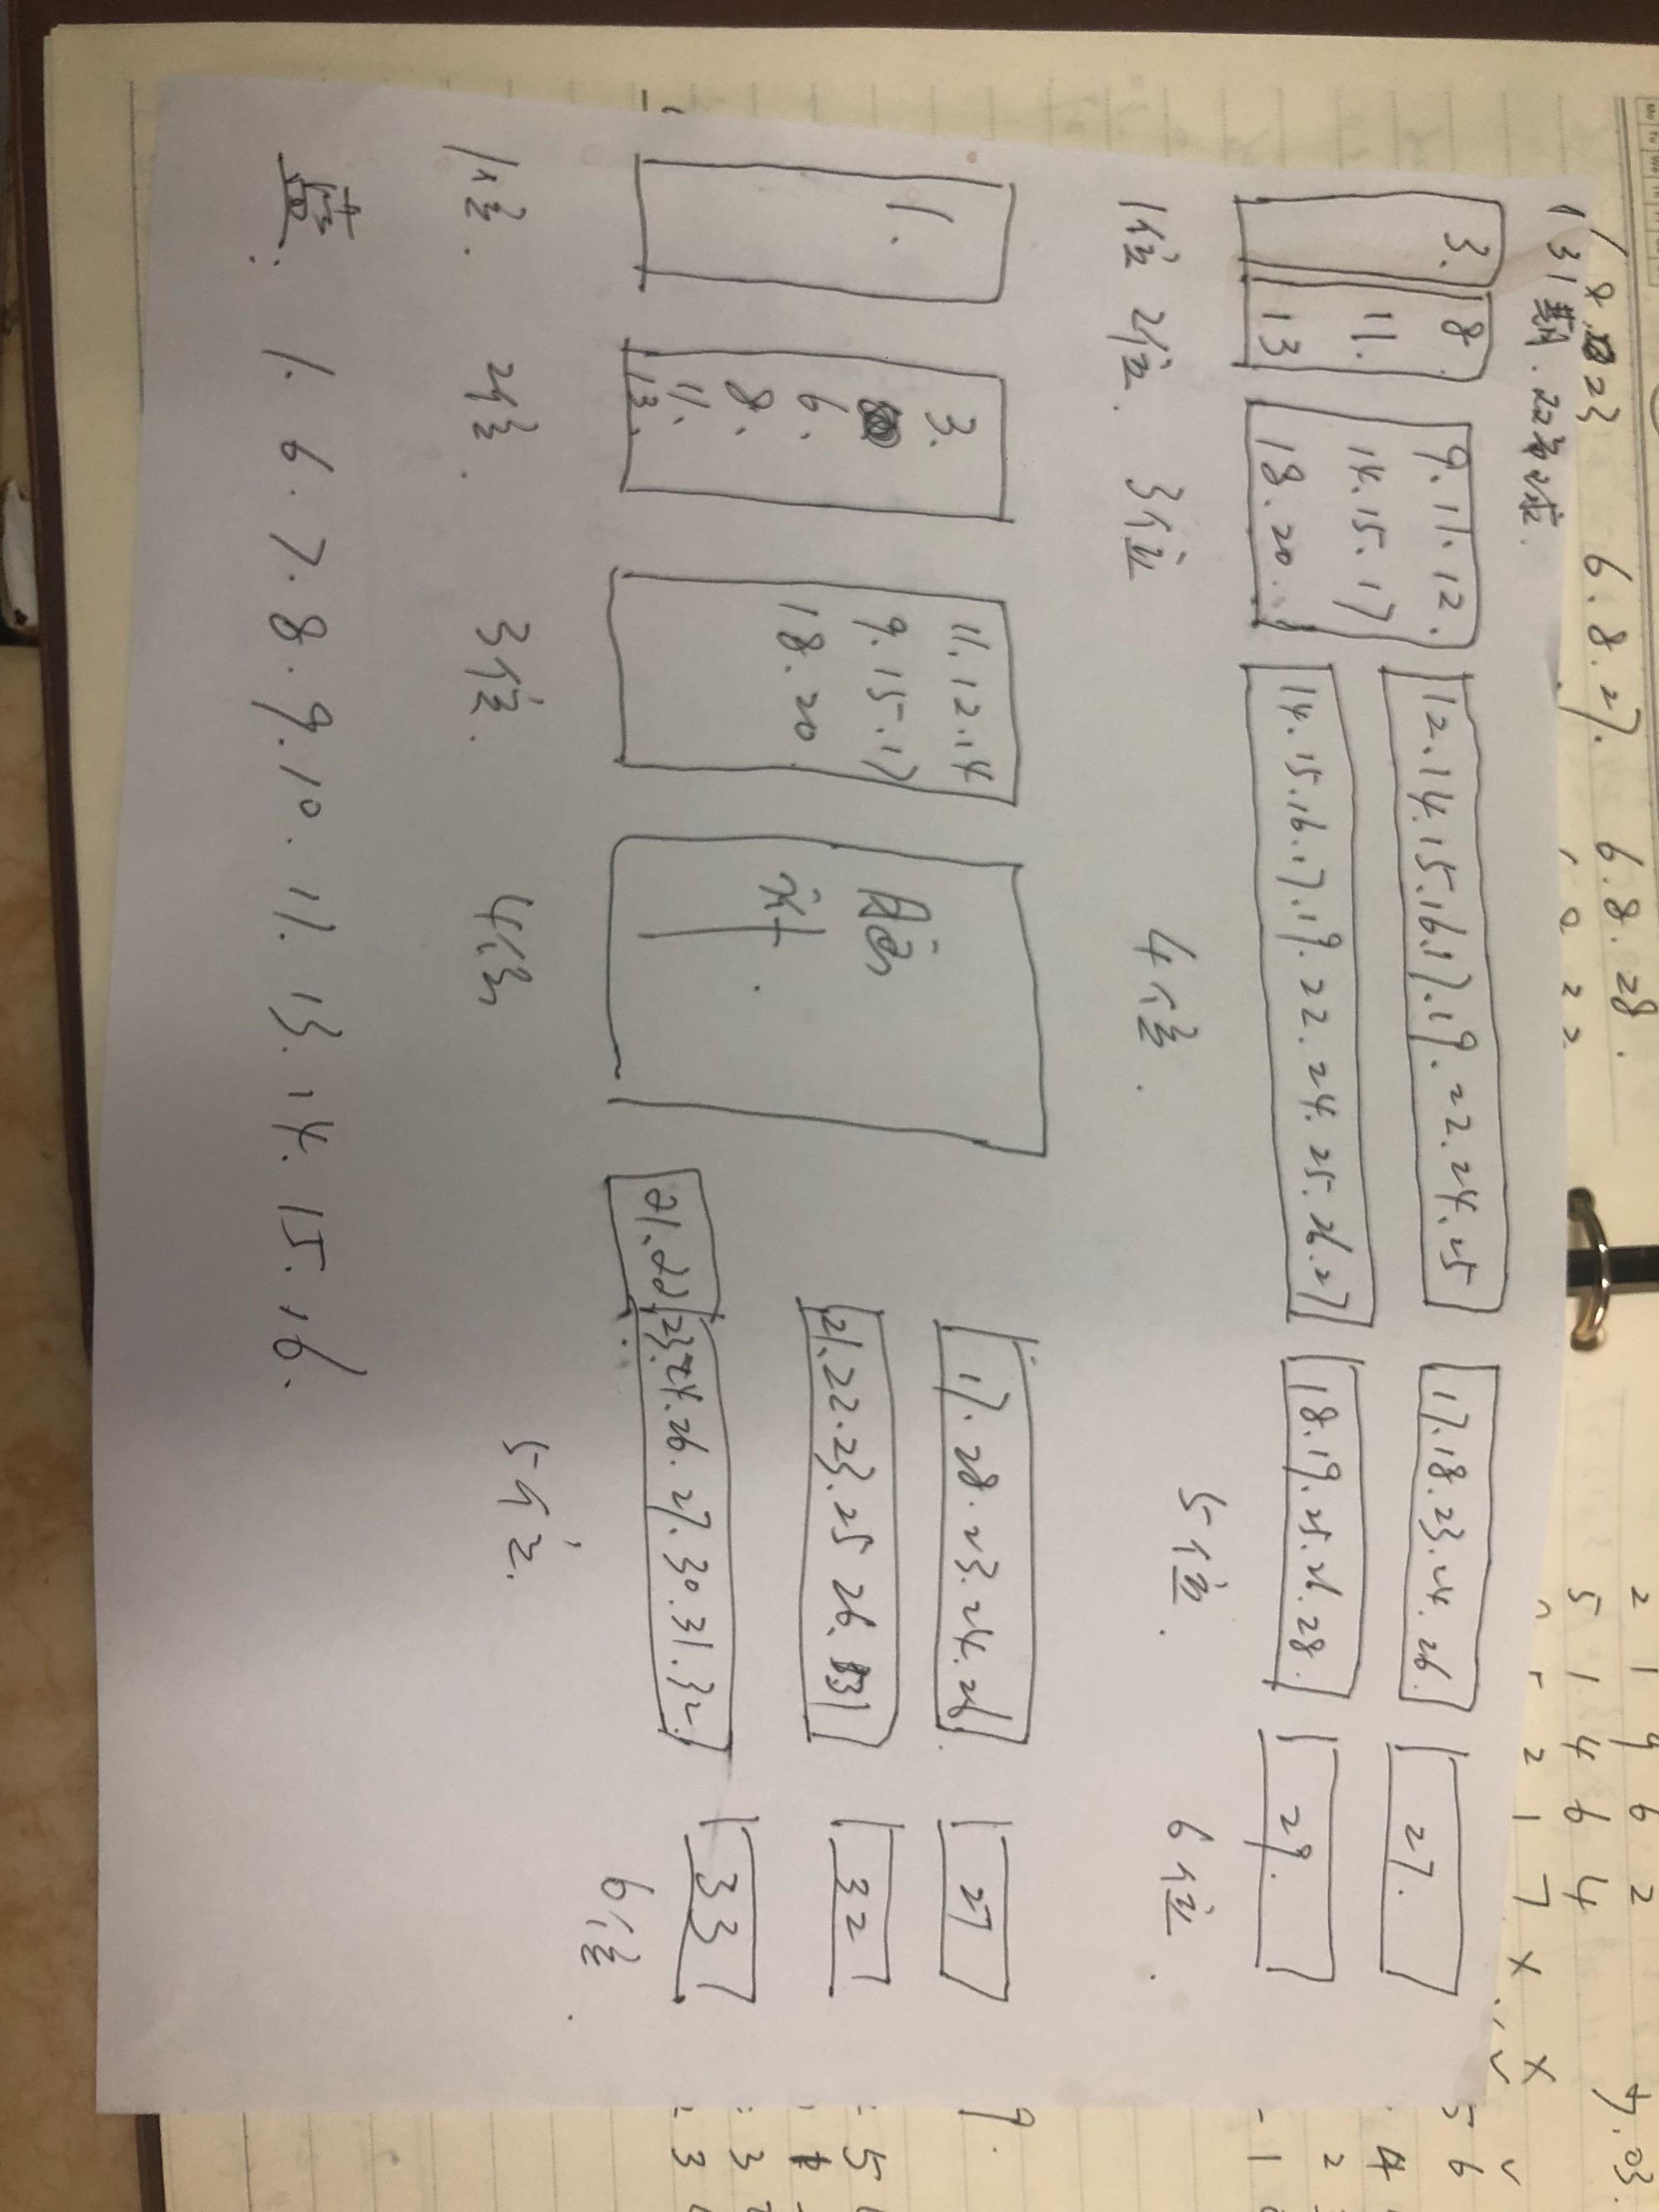 131期.22

3. 8. 9.11.12. 12.14.15.16.17.19.22.24.25 17.18.23.24.26. 27.
11. 14.15.17
13 18.20. 14.15.16.17.19.22.24.25.26.27 18.19.25.26.28. 29.
1位 2位. 3位 4位. 5位. 6位.
1. 3. 11.12.14 17.28.23.24.26 27
6. 9.15.17
8. 18.20 21.22.23.25 26. 31 32
11.
13. 21.22 23.24.26.27.30.31.32. 33
1位. 2位. 3位. 4位 5位. 6位.
蓝. 1. 6. 7. 8. 9. 10. 11. 13. 14. 15. 16.
6.8.27. 6.8.28.